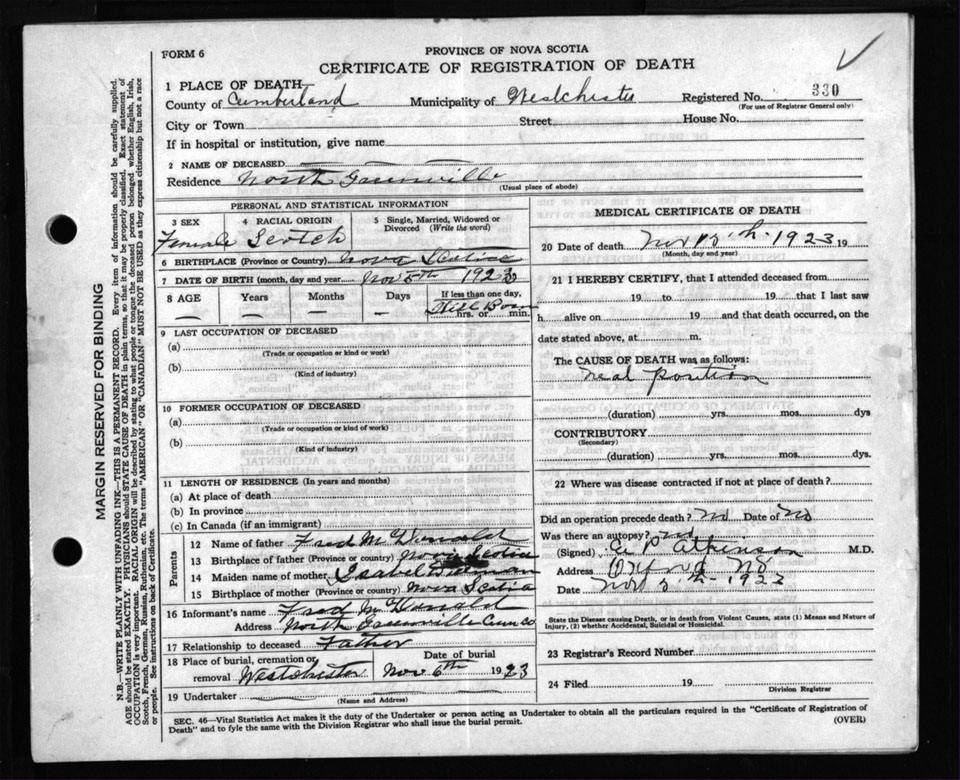 FORM 6
PROVINCE OF NOVA SCOTIA
CERTIFICATE OF REGISTRATION OF DEATH
1 PLACE OF DEATH
County of Cumberland Municipality of Westchester Registered No. 330
(For use of Registrar General only)
City or Town Street House No.
If in hospital or institution, give name
2 NAME OF DECEASED — — —
Residence North Greenville
(Usual place of abode)
PERSONAL AND STATISTICAL INFORMATION
3 SEX 4 RACIAL ORIGIN 5 Single, Married, Widowed or Divorced (Write the word)
Female Scotch
6 BIRTHPLACE (Province or Country) Nova Scotia
7 DATE OF BIRTH (month, day and year) Nov 5th 1923
8 AGE Years Months Days If less than one day,
— — — — Still Born
hrs. or min.
9 LAST OCCUPATION OF DECEASED
(a)
(Trade or occupation or kind of work)
(b)
(Kind of industry)
10 FORMER OCCUPATION OF DECEASED
(a)
(Trade or occupation or kind of work)
(b)
(Kind of industry)
11 LENGTH OF RESIDENCE (In years and months)
(a) At place of death
(b) In province
(c) In Canada (if an immigrant)
Parents
12 Name of father Fred McDonald
13 Birthplace of father (Province or country) Nova Scotia
14 Maiden name of mother Isabel
15 Birthplace of mother (Province or country) Nova Scotia
16 Informant's name Fred McDonald
Address North Greenville Cum Co
17 Relationship to deceased Father
18 Place of burial, cremation or removal Westchester Date of burial Nov 6th 1923
19 Undertaker
(Name and Address)
MEDICAL CERTIFICATE OF DEATH
20 Date of death Nov 1923 19
(Month, day and year)
21 I HEREBY CERTIFY, that I attended deceased from
19 to 19 that I last saw
h alive on 19 and that death occurred, on the
date stated above, at m.
The CAUSE OF DEATH was as follows:
position
(duration) yrs. mos. dys
CONTRIBUTORY
(Secondary)
(duration) yrs. mos. dys.
22 Where was disease contracted if not at place of death?
Did an operation precede death? No Date of No
Was there an autopsy? no
(Signed) Atkinson M.D.
Address Oxford NS
Date Nov 1923
State the Disease causing Death, or in death from Violent Causes, state (1) Means and Nature of Injury, (2) whether Accidental, Suicidal or Homicidal.
23 Registrar's Record Number
24 Filed 19
Division Registrar
SEC. 46—Vital Statistics Act makes it the duty of the Undertaker or person acting as Undertaker to obtain all the particulars required in the "Certificate of Registration of
Death" and to fyle the same with the Division Registrar who shall issue the burial permit.
(OVER)
MARGIN RESERVED FOR BINDING
N.B.—WRITE PLAINLY WITH UNFADING INK—THIS IS A PERMANENT RECORD. Every item of information should be carefully supplied.
AGE should be stated EXACTLY. PHYSICIANS should STATE CAUSE OF DEATH in plain terms, so that it may be properly classified. Exact statement of
OCCUPATION is very important. RACIAL ORIGIN will be described by stating to what people or tongue the deceased person belonged whether English, Irish,
Scotch, French, German, Russian, Ruthenian, etc. The terms "AMERICAN" OR "CANADIAN" MUST NOT BE USED as they express citizenship but not a race
or people. See instructions on back of Certificate.